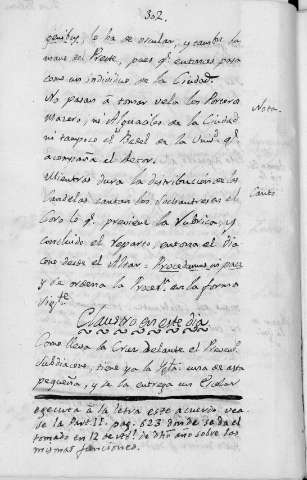 302.
se ha de oscular, y tambn. la
mano del Preste, pues qe. entonces pasa
como un individuo de la Ciudad.
No pasan à tomar vela los Porteros
Nota
Mazero, ni Alguaciles de la Ciudad
ni tampoco el Bedel en la Unid. qe.
acompaña el Rector.
Mientras dura la distribucion de las
Canto
Candelas cantan los Sochantres en el
Coro lo qe. previene la Rubrica, y
concluido el reparto, entona el Dia
cono desde el Altar = Procedamus in pace
y se ordena la Proceon. en la forma
sigte.
Claustro en este dia
Como lleva la Cruz delante el
Subdiacono, tiene ya la Igla. una de asta
pequeña, y se la entrega un Escolar
egecuta à la letra este acuerdo vea
se la Part. II. pag. 623 donde se dà el
tomado en 12 de dho año sobre las
mismas funciones.